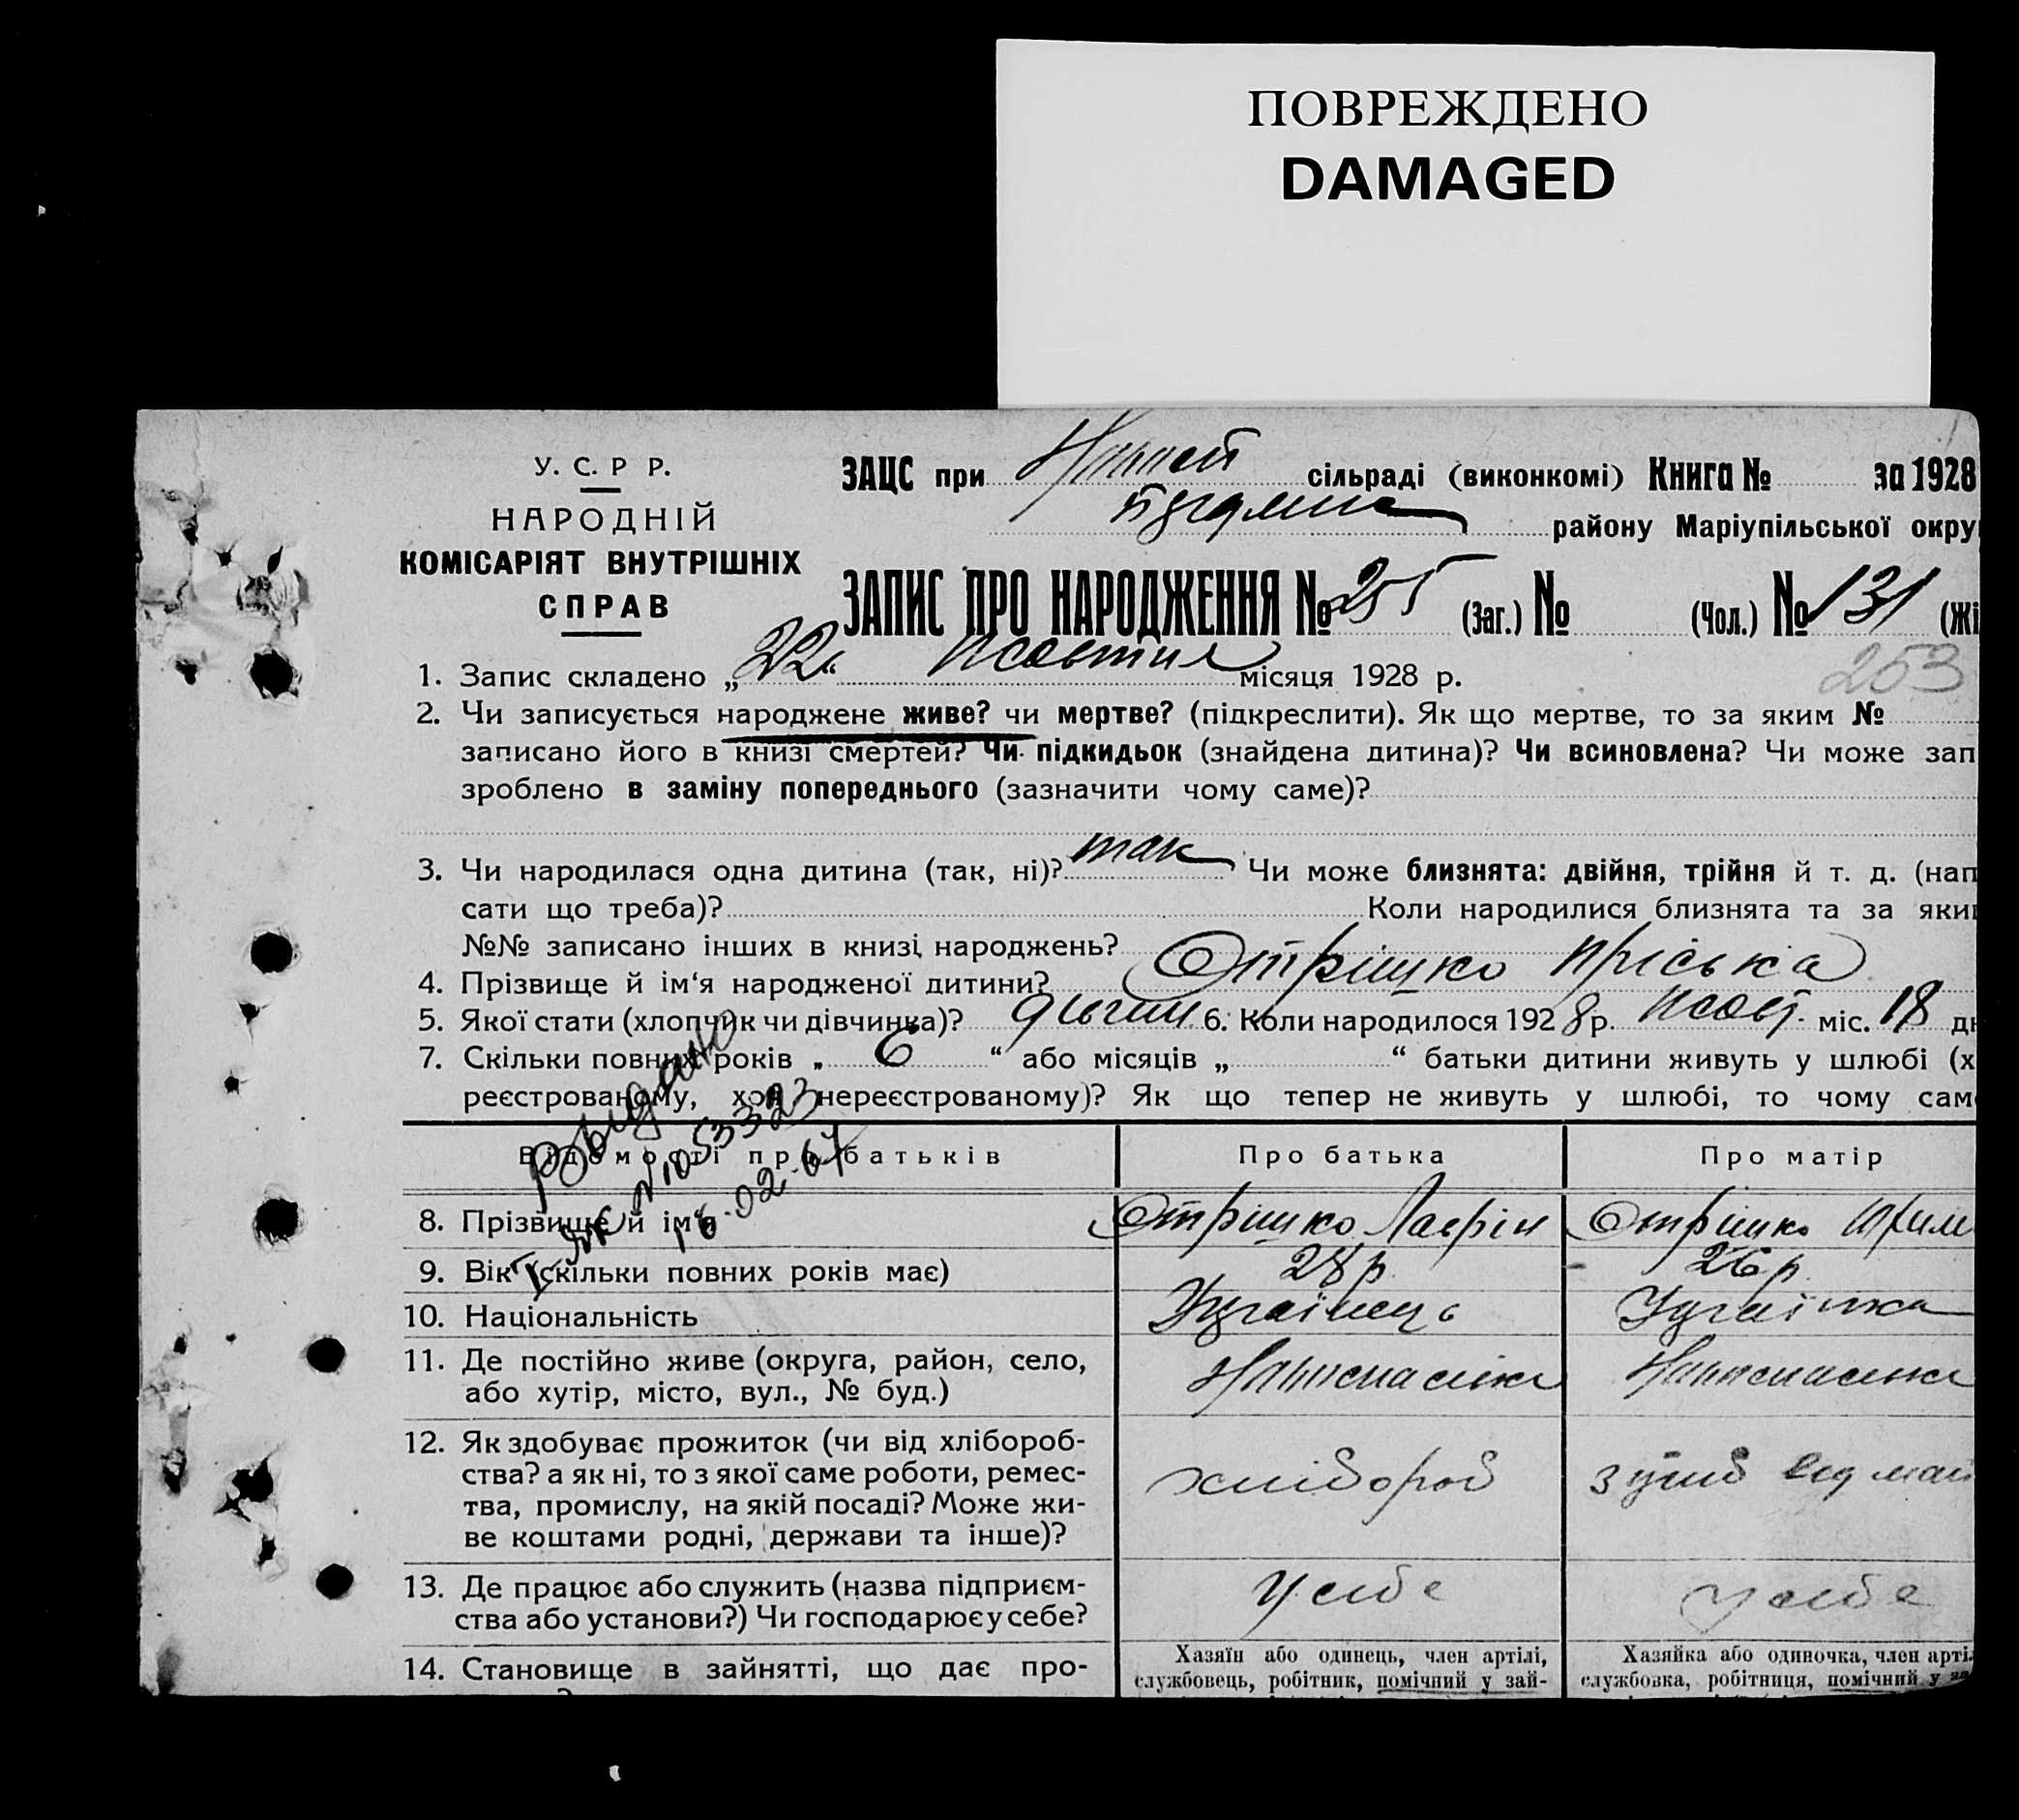 ПОВРЕЖДЕНО
DAMAGED
У. С. Р Р.
НАРОДНІЙ
КОМІСАРІЯТ ВНУТРІШНІХ
СПРАВ
ЗАЦС при сільраді (виконкомі) Книга № за 1928
району Маріупільської окру
ЗАПИС ПРО НАРОДЖЕННЯ № 255 (Заг.) № (Чол.) № 131 (Жі
253
1. Запис складено „22“ жовтня місяця 1928 р.
2. Чи записується народжене живе? чи мертве? (підкреслити). Як що мертве, то за яким №
записано його в книзі смертей? Чи підкидьок (знайдена дитина)? Чи всиновлена? Чи може зап
зроблено в заміну попереднього (зазначити чому саме)?
3. Чи народилася одна дитина (так, ні)? так Чи може близнята: двійня, трійня й т. д. (нап
сати що треба)? Коли народилися близнята та за яки
№№ записано інших в книзі народжень?
4. Прізвище й ім‘я народженої дитини? Отрішко Пріська
5. Якої стати (хлопчик чи дівчинка)? 6. Коли народилося 1928 р. жовт. міс. 18 дн
7. Скільки повних років „ 6 “ або місяців „ “ батьки дитини живуть у шлюбі (х
реєстрованому, хоч нереєстрованому)? Як що тепер не живуть у шлюбі, то чому сам
Видано
№ 1053323
16.02.67
Відомості про батьків Про батька Про матір
8. Прізвище й ім‘я Отрішко Лаврін Отрішко
9. Вік (скільки повних років має) 28 р. 26 р.
10. Національність Українець Українка
11. Де постійно живе (округа, район, село,
або хутір, місто, вул., № буд.)
12. Як здобуває прожиток (чи від хлібороб-
ства? а як ні, то з якої саме роботи, ремес-
тва, промислу, на якій посаді? Може жи-
ве коштами родні, держави та інше)?
хлібороб
13. Де працює або служить (назва підприєм-
ства або установи?) Чи господарює у себе?
У себе у себе
14. Становище в зайнятті, що дає про-
Хазяїн або одинець, член артілі,
службовець, робітник, помічний у зай-
Хазяйка або одиночка, член арті
службовка, робітниця, помічний у за